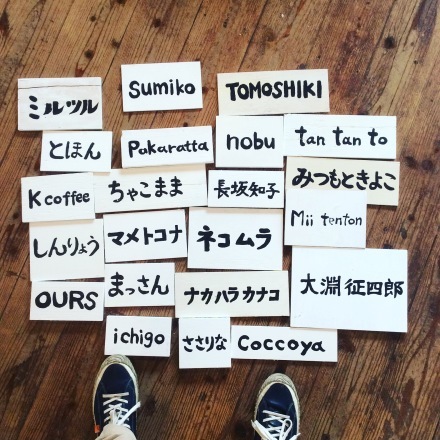 ミルツル
Sumiko
TOMOSHIKI
とほん
Pakaratta
nobu
tan tan to
K coffee
ちゃこまま
長坂知子
みつもときよこ
しんりょう
マメトコナ
ネコムラ
Mii tenton
OURS
まっさん
ナカハラカナコ
大淵征四郎
ichigo
ささりな
Coccoya